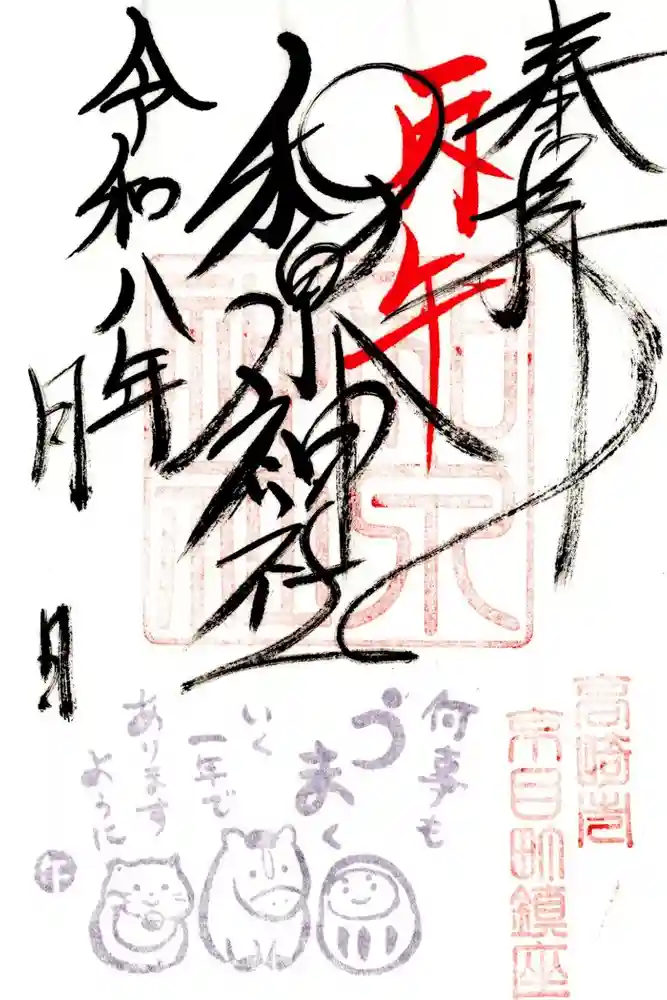 奉拝
丙午
和泉神社
令和八年
月
日
和泉
神社
高崎市
京目町鎮座
何事も
うまく
いく
一年で
あります
ように